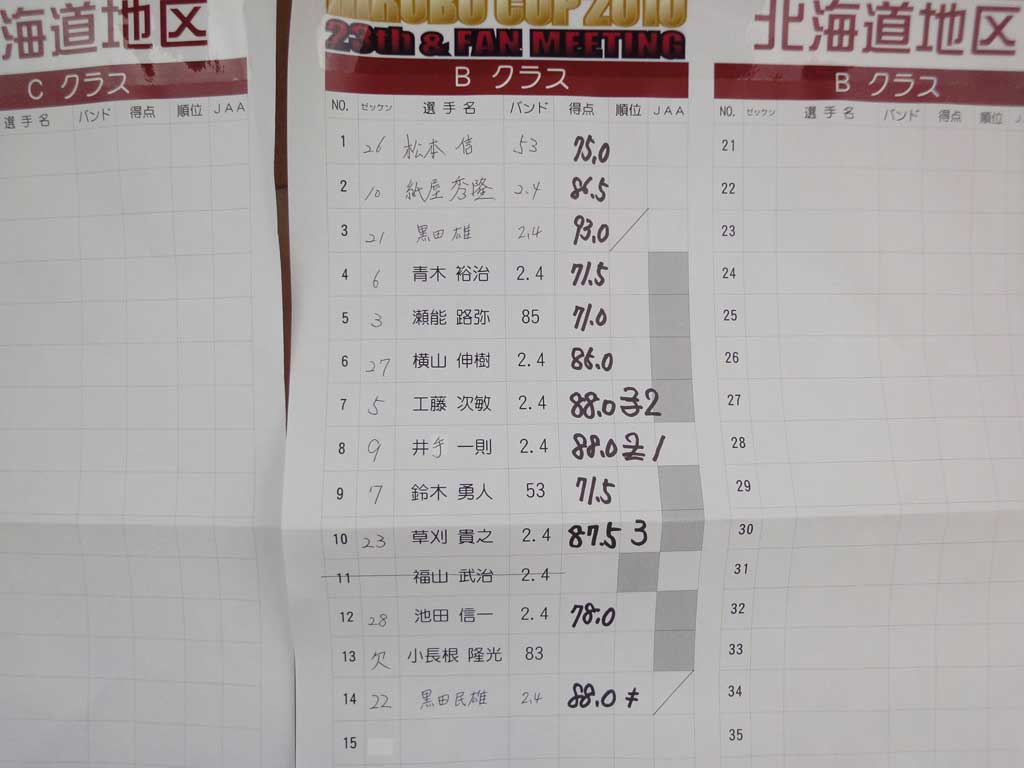 海道地区
C クラス
選手名 バンド 得点 順位 JAA
HIROBO CUP 2010
23th & FAN MEETING
B クラス
NO. ゼッケン 選手名 バンド 得点 順位 JAA
1 26 松本 信 53 75.0
2 10 紙屋 秀隆 2.4 86.5
3 21 黒田 雄 2.4 93.0
4 6 青木 裕治 2.4 71.5
5 3 瀬能 路弥 85 71.0
6 27 横山 伸樹 2.4 86.0
7 5 工藤 次敏 2.4 88.0 2
8 9 井手 一則 2.4 88.0 1
9 7 鈴木 勇人 53 71.5
10 23 草刈 貴之 2.4 87.5 3
11 福山 武治 2.4
12 28 池田 信一 2.4 78.0
13 欠 小長根 隆光 83
14 22 黒田民雄 2.4 88.0
15
北海道地区
B クラス
NO. ゼッケン 選手名 バンド 得点 順位
21
22
23
24
25
26
27
28
29
30
31
32
33
34
35